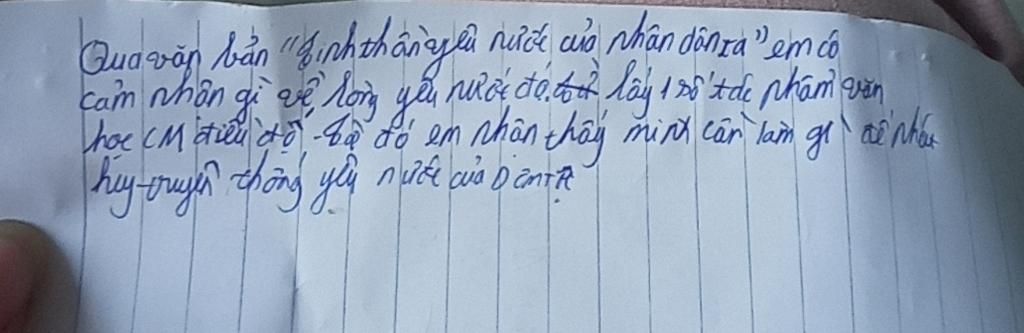 Qua văn bản "tinh thần yêu nước của nhân dân ta" em có
cảm nhận gì về lòng yêu nước đó. lấy 1 số tác phẩm văn
học CM điều đó. từ đó em nhận thấy mình cần làm gì để phát
huy truyền thống yêu nước của Dân TA